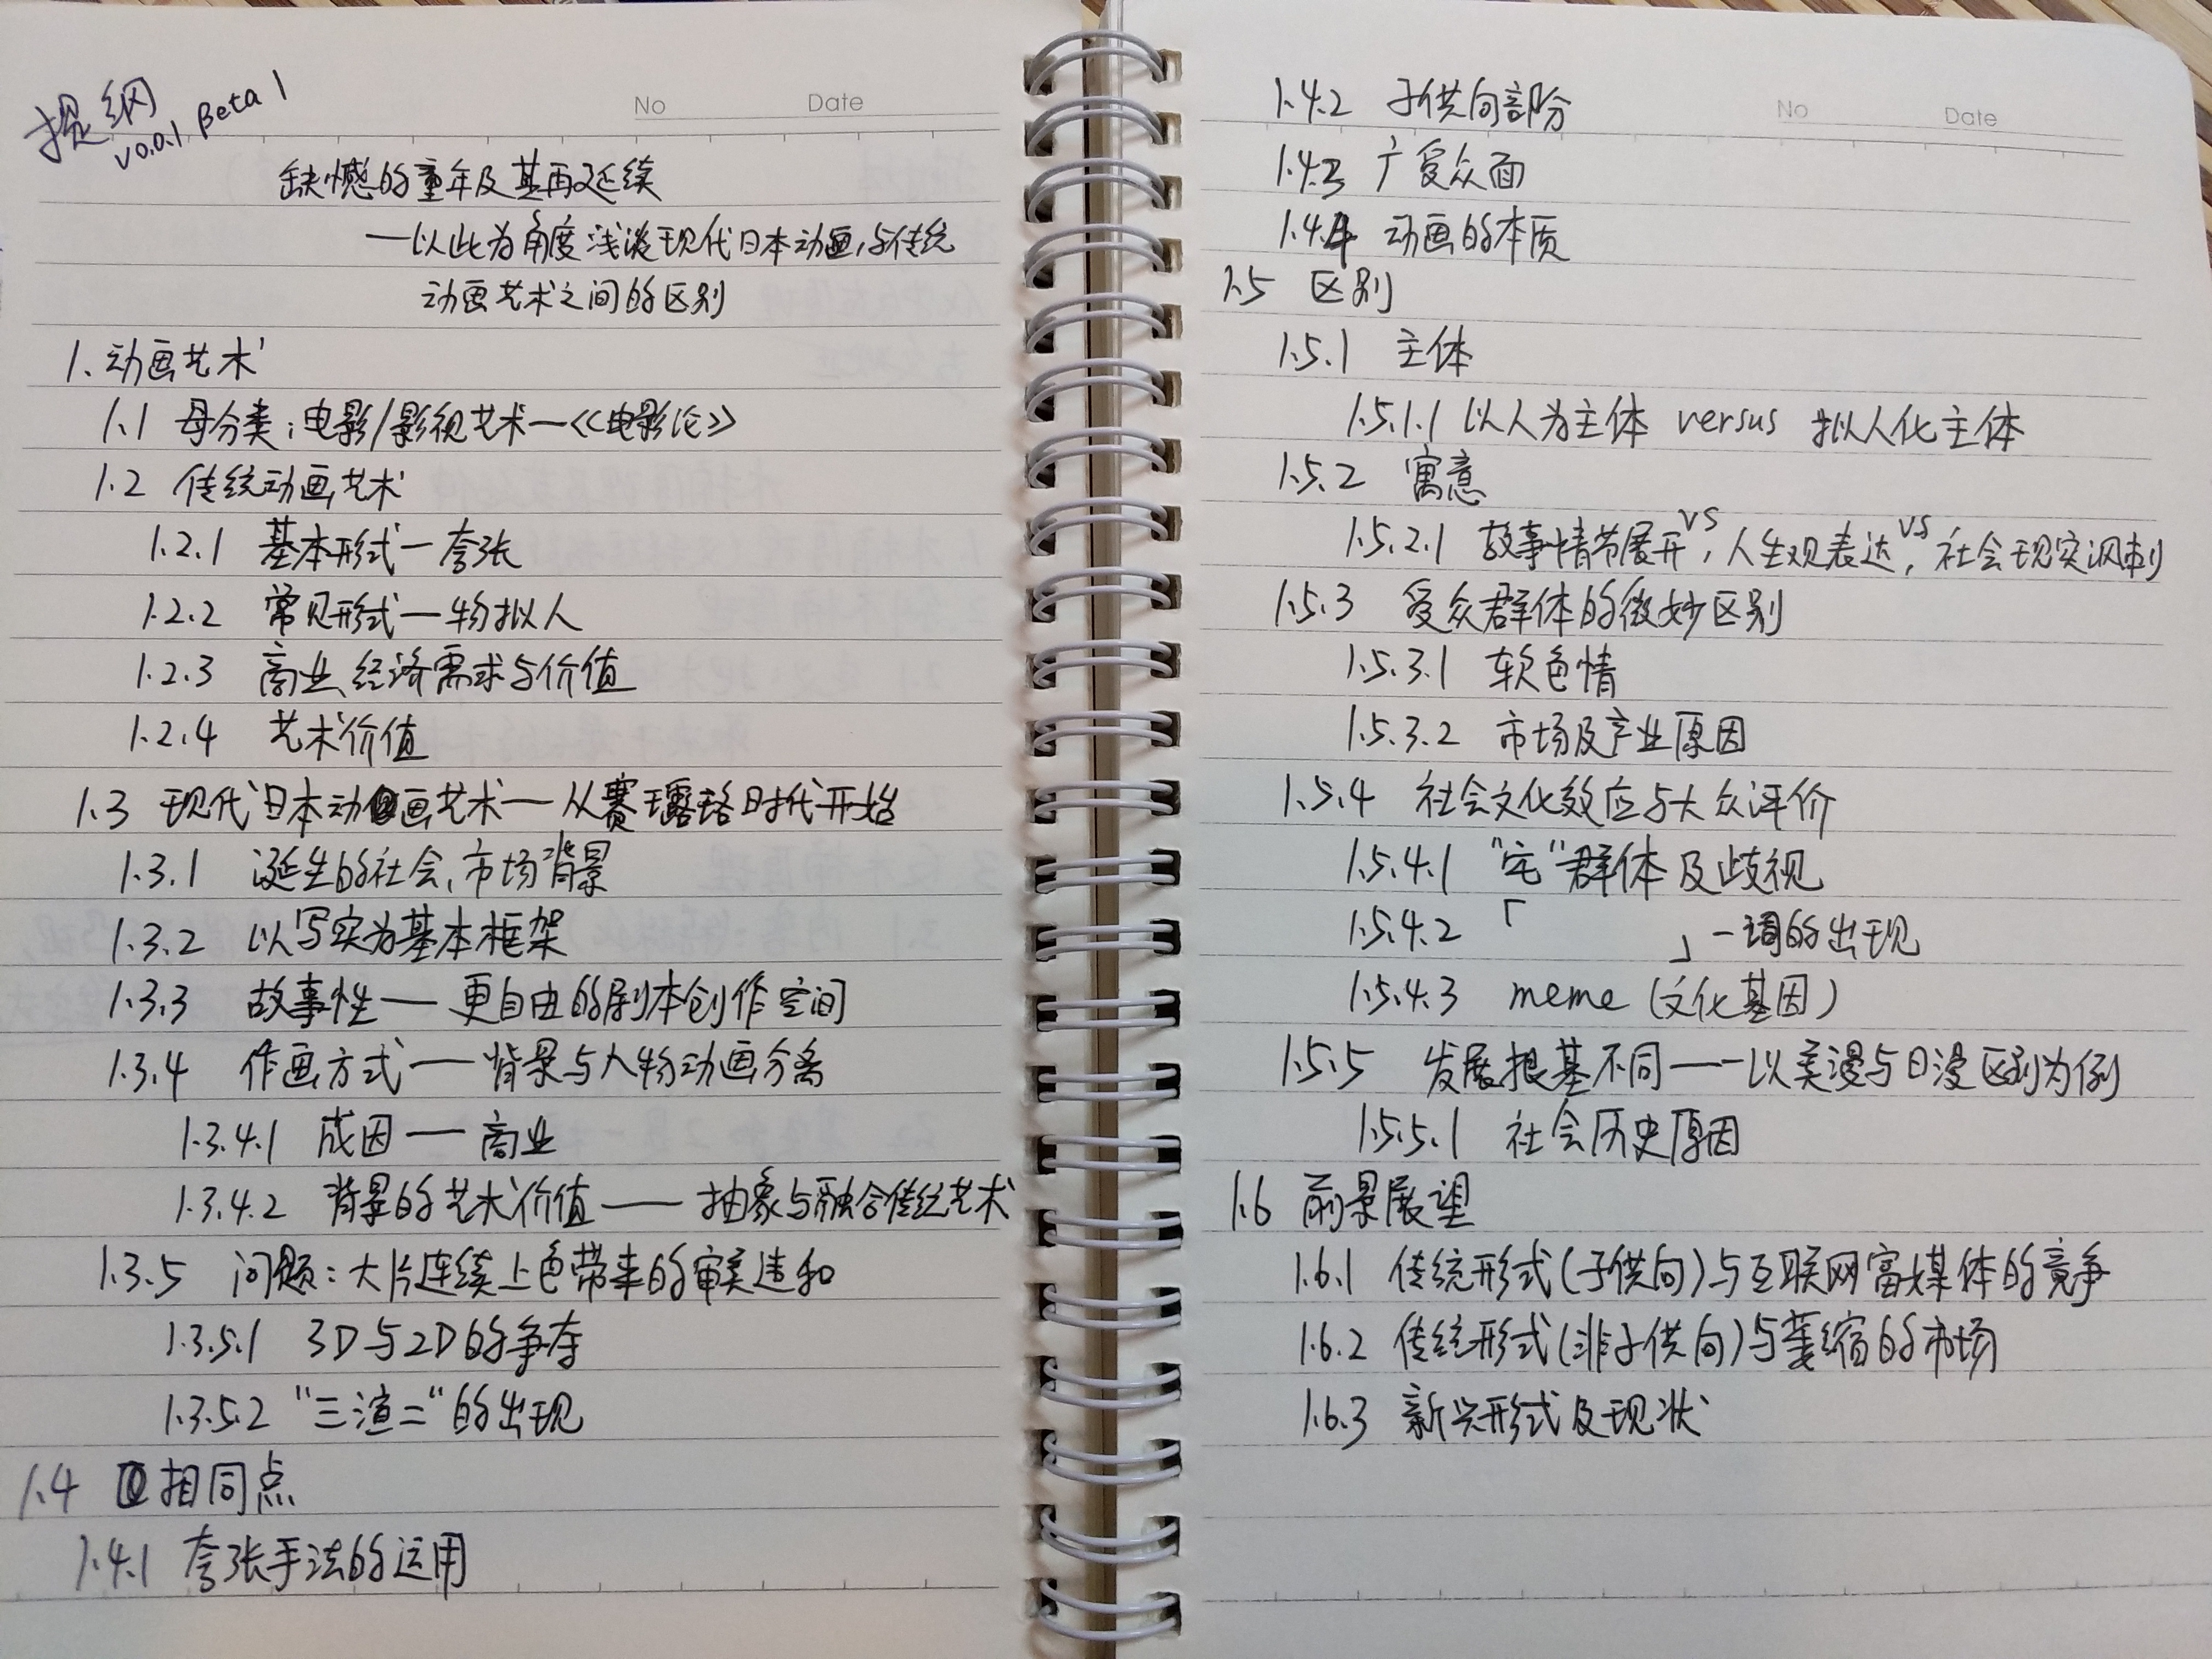 提纲
v0.0.1 Beta 1
No Date
缺憾的童年及其再延续
—以此为角度浅谈现代日本动画与传统
动画艺术之间的区别
1.动画艺术
1.1 母分类:电影/影视艺术—《电影论》
1.2 传统动画艺术
1.2.1 基本形式—夸张
1.2.2 常见形式—物拟人
1.2.3 商业、经济需求与价值
1.2.4 艺术价值
1.3 现代日本动画艺术—从赛璐珞时代开始
1.3.1 诞生的社会、市场背景
1.3.2 以写实为基本框架
1.3.3 故事性—更自由的剧本创作空间
1.3.4 作画方式—背景与人物动画分离
1.3.4.1 成因—商业
1.3.4.2 背景的艺术价值——抽象与融合传统艺术
1.3.5 问题:大片连续上色带来的审美违和
1.3.5.1 3D与2D的争夺
1.3.5.2 "三渲二"的出现
1.4 相同点
1.4.1 夸张手法的运用
No Date
1.4.2 子供向部分
1.4.3 广受众面
1.4.4 动画的本质
1.5 区别
1.5.1 主体
1.5.1.1 以人为主体 versus 拟人化主体
1.5.2 寓意
1.5.2.1 故事情节展开 vs, 人生观表达 vs, 社会现实讽刺
1.5.3 受众群体的微妙区别
1.5.3.1 软色情
1.5.3.2 市场及产业原因
1.5.4 社会文化效应与大众评价
1.5.4.1 "宅"群体及歧视
1.5.4.2 「 」一词的出现
1.5.4.3 meme (文化基因)
1.5.5 发展根基不同——以美漫与日漫区别为例
1.5.5.1 社会历史原因
1.6 前景展望
1.6.1 传统形式(子供向)与互联网富媒体的竞争
1.6.2 传统形式(非子供向)与萎缩的市场
1.6.3 新兴形式及现状